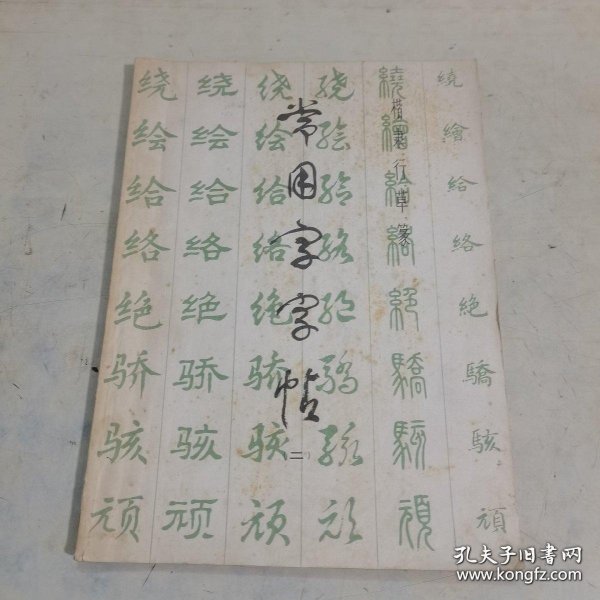 常用字字帖
(二)
楷隶行草篆
绕 绕 绕 绕 繞 繞
绘 绘 绘 绘 繪 繪
给 给 给 给 給 給
络 络 络 络 絡 絡
绝 绝 绝 绝 絕 絶
骄 骄 骄 骄 驕 驕
骇 骇 骇 骇 駭 駭
顽 顽 顽 顽 頑 頑
孔夫子旧书网
www.kongfz.com